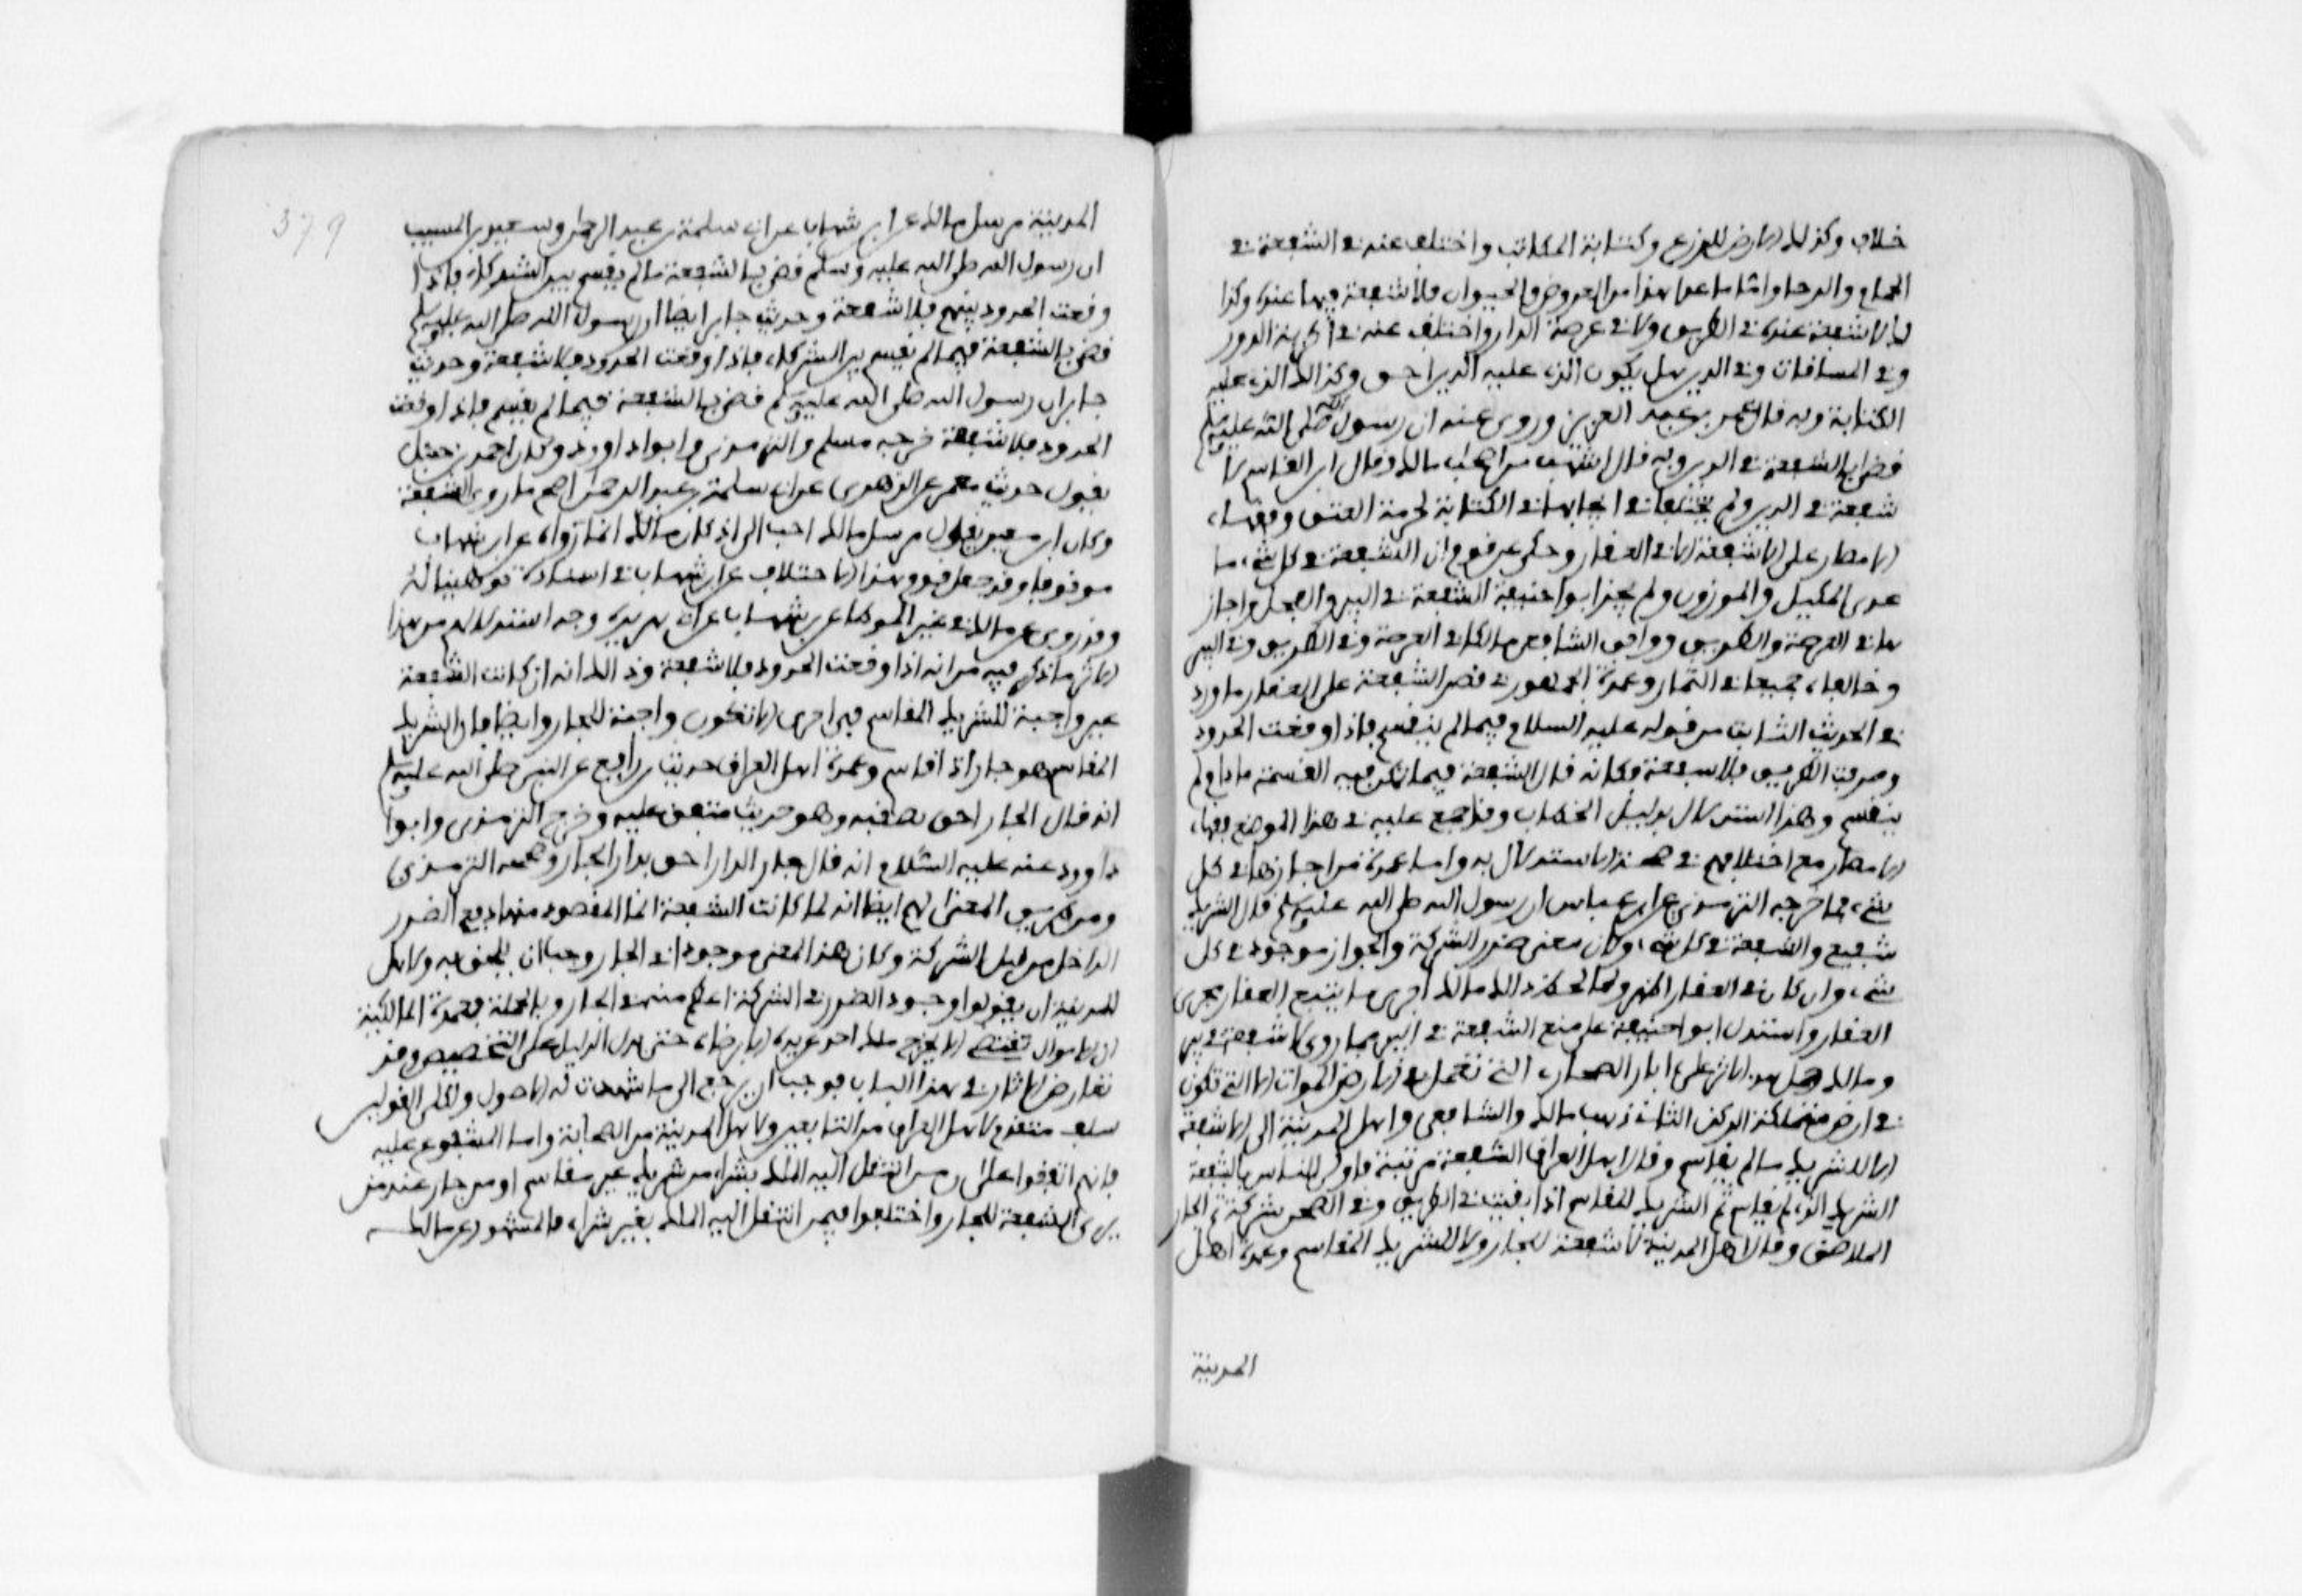 خلاف وكذلك الارض للزرع وكتابة المكاتب واختلف عنه في الشفعة في
الحمام والرحا واما ما عدا هذا من العروض والحيوان فلا شفعة فيها عنده وكذا
لا شفعة عنده في الطريق ولا في عرصة الدار واختلف عنه في اكرية الدور
وفي المساقات وفي الدين هل يكون الذي عليه الدين احق وكذالك الذي عليه
الكتابة وبه قال عمر بن عبد العزيز وروي عنه ان رسول الله صلى الله عليه وسلم
قضى بالشفعة في الدين وبه قال اشهب من اصحاب مالك وقال ابن القاسم لا
شفعة في الدين ولم يختلفا في ايجابها في الكتابة لحرمة العتق وفقهاء
الامصار على الا شفعة الا في العقار وحكي عن قوم ان الشفعة في كل شيء ما
عدى المكيل والموزون ولم يجز ابو حنيفة الشفعة في البير والفحل واجاز
ها في العرصة والطريق ووافق الشافعي مالكا في العرصة وفي الطريق وفي البير
وخالفاه جميعا في الثمار وعمدة الجمهور في قصر الشفعة على العقار ما ورد
في الحديث الثابت من قوله عليه السلام فيما لم ينقسم فاذا وقعت الحدود
وصرفت الطريق فلا شفعة فكانه قال الشفعة فيما تمكن فيه القسمة ما دام لم
ينقسم وهذا استدلال بدليل الخطاب وقد اجمع عليه في هذا الموضع فقهاء
الامصار مع اختلافهم في صحة الاستدلال به واما عمدة من اجازها في كل
شيء فما خرجه الترمذي عن ابن عباس ان رسول الله صلى الله عليه وسلم قال الشريك
شفيع والشفعة في كل شيء ولان معنى ضرر الشركة والجوار موجود في كل
شيء وان كان في العقار اظهر ولما لحظ ذالك مالك اجرى ما يتبع العقار مجرى
العقار واستدل ابو حنيفة على منع الشفعة في البير بما روي لا شفعة في بير
ومالك حمل هذا الاثر على ابار الصحاري التي تعمل في الارض الموات لا التي تكون
في ارض متملكة الركن الثالث ذهب مالك والشافعي واهل المدينة الى الا شفعة
الا للشريك ما لم يقاسم وقال اهل العراق الشفعة مرتبة فاولى الناس بالشفعة
الشريك الذي لم يقاسم ثم الشريك المقاسم اذا بقيت في الطريق وفي الصحن شركة ثم الجار
الملاصق وقال اهل المدينة لا شفعة للجار ولا للشريك المقاسم وعمدة اهل
المدينة
379
المدينة مرسل مالك عن ابن شهاب عن ابي سلمة بن عبد الرحمان وسعيد بن المسيب
ان رسول الله صلى الله عليه وسلم قضى بالشفعة ما لم يقسم بين الشركاء فاذا
وقعت الحدود بينهم فلا شفعة وحديث جابر ايضا ان رسول الله صلى الله عليه وسلم
قضى بالشفعة فيما لم يقسم بين الشركاء فاذا وقعت الحدود فلا شفعة وحديث
جابر ان رسول الله صلى الله عليه وسلم قضى بالشفعة فيما لم يقسم فاذا وقعت
الحدود فلا شفعة خرجه مسلم والترمذي وابو داوود وكان احمد بن حنبل
يقول حديث معمر عن الزهري عن ابي سلمة بن عبد الرحمن اصح ما روي في الشفعة
وكان ابن معين يقول مرسل مالك احب الى اذ كان مالك انما رواه عن ابن شهاب
موقوفا وقد جعل قوم هذا الاختلاف عن ابن شهاب في اسناده توهينا له
وقد روي عن مالك في غير الموطا عن ابن شهاب عن ابي هريرة وجه استدلالهم من هذا
الاثر ما ذكر فيه من انه اذا وقعت الحدود فلا شفعة وذالك انه اذا كانت الشفعة
غير واجبة للشريك المقاسم فهي احرى الا تكون واجبة للجار وايضا فان الشريك
المقاسم هو جار اذا قاسم وعمدة اهل العراق حديث ابي رافع عن النبي صلى الله عليه وسلم
انه قال الجار احق بصقبه وهو حديث متفق عليه وخرج الترمذي وابو
داوود عنه عليه السلام انه قال جار الدار احق بدار الجار وصححه الترمذي
ومن طريق المعنى لهم ايضا انه لما كانت الشفعة انما المقصود منها دفع الضرر
الداخل من قبل الشركة وكان هذا المعنى موجودا في الجار وجب ان يلحق به ولاهل
المدينة ان يقولوا وجود الضرر في الشركة اعظم منه في الجار وبالجملة فعمدة المالكية
ان الاصول تقتضي الا يخرج ملك احد عن يده الا برضاه حتى يدل الدليل على التخصيص وقد
تعارض الاثار في هذا الباب فوجب ان يرجع الى ما شهدت له الاصول ولكلا القولين
سلف متقدم لاهل العراق من التابعين ولاهل المدينة من الصحابة واما المشفوع عليه
فانهم اتفقوا على انه من انتقل اليه الملك بشراء من شريك غير مقاسم او من جار عند من
يرى الشفعة للجار واختلفوا فيمن انتقل اليه الملك بغير شراء فالمشهور عن مالك